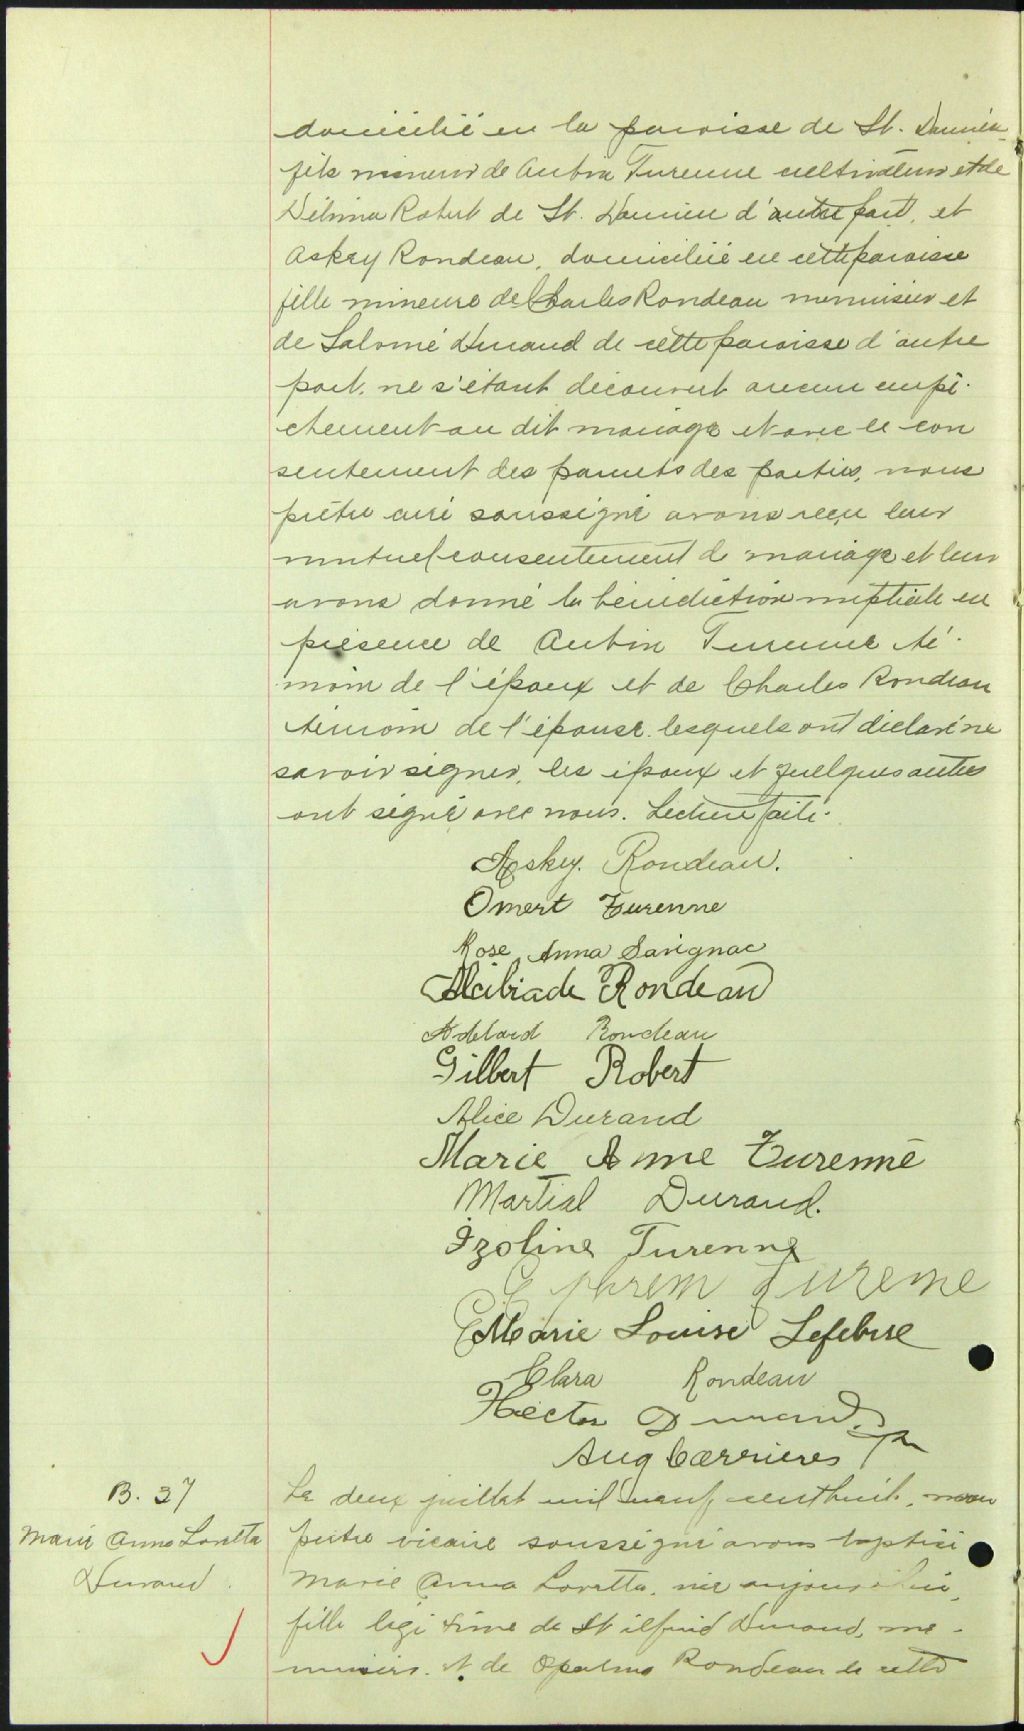 domicilié en la paroisse de St. Damien
fils mineur de Aubin Turenne cultivateur et de
Délima Robert de St. Damien d'autre part, et
Askey Rondeau, domiciliée en cette paroisse
fille mineure de Charles Rondeau menuisier et
de Salomé Durand de cette paroisse d'autre
part, ne s'étant découvert aucun empê-
chement au dit mariage et avec le con
sentement des parents des parties, nous
prêtre curé soussigné avons reçu leur
mutuel consentement de mariage et leur
avons donné la bénédiction nuptiale en
présence de Aubin Turenne té-
moin de l'époux et de Charles Rondeau
témoin de l'épouse lesquels ont déclaré ne
savoir signer, les époux et quelques autres
ont signé avec nous. Lecture faite.
Askey. Rondeau.
Omert Turenne
Rose Anna Savignac
Alcibiade Rondeau
Adélard Rondeau
Gilbert Robert
Alice Durand
Marie Anne Turenne
Martial Durand.
Izoline Turenne
Ephrem Turenne
Marie Louise Lefebvre
Clara Rondeau
Hector Durand
Aug Carrières
B. 37
Marie Anna Loretta
Durand
Le deux juillet mil neuf cent huit, nous
prêtre vicaire soussigné avons baptisé
Marie Anna Loretta, née aujourd'hui,
fille légitime de Wilfrid Durand, me-
nuisier. et de Rondeau de cette